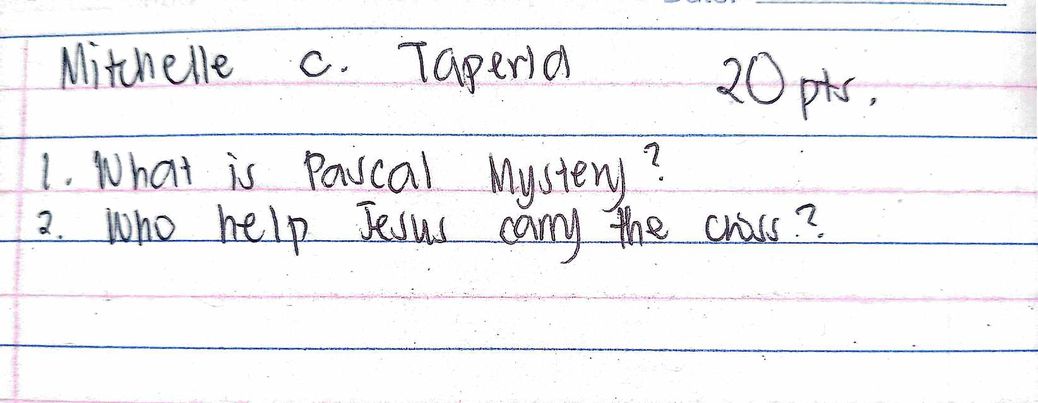 Mitchelle C. Taperla 20 pts.
1. What is Pascal Mystery?
2. Who help Jesus carry the cross?